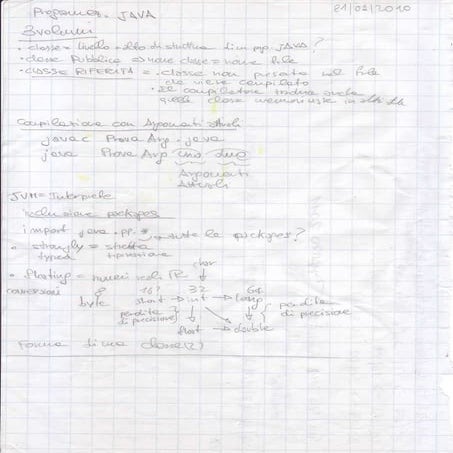 Programmaz. JAVA 21/01/2010
3 volumi
• classe = livello + alto di struttura di un pp. JAVA?
• classe Pubblica => nome classe = nome file
• CLASSE RIFERITA = . classe non presente nel file
che viene compilato
• Il compilatore traduce anche
quelle classi memorizzate in altri file
Compilazione con Argomenti Attuali
javac Prova Arg . java
java Prova Arg uno due
Argomenti
Attuali
JVM = Interprete
inclusione packages
import java . pp. * tutte le packages?
• strongly = stretta
typed tipizzazione
• floating = numeri reali R char
conversioni 8 16? 32 64
byte short → int → long
perdita di precisione perdita di precisione
float → double
Forma di una classe (2)